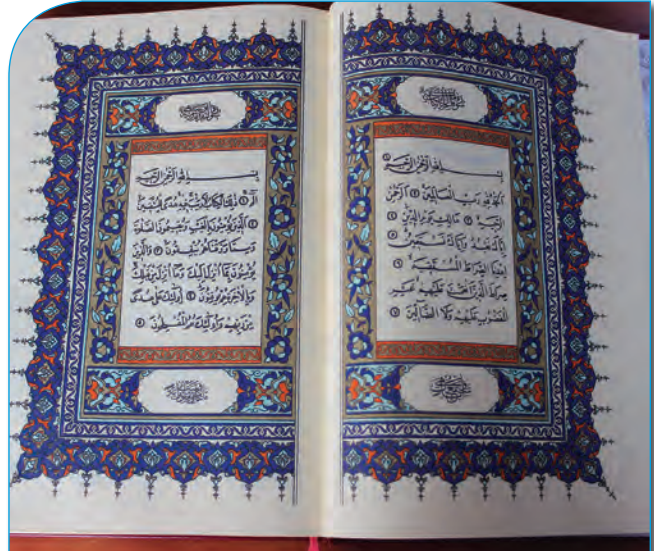 سُورَةُ الْفَاتِحَةِ
بِسْمِ اللّٰهِ الرَّحْمٰنِ الرَّحِيمِ ١
اَلْحَمْدُ لِلّٰهِ رَبِّ الْعَالَمِينَ ٢ اَلرَّحْمٰنِ
الرَّحِيمِ ٣ مَالِكِ يَوْمِ الدِّينِ ٤
اِيَّاكَ نَعْبُدُ وَاِيَّاكَ نَسْتَعِينُ ٥
اِهْدِنَا الصِّرَاطَ الْمُسْتَقِيمَ ٦
صِرَاطَ الَّذِينَ اَنْعَمْتَ عَلَيْهِمْ غَيْرِ
الْمَغْضُوبِ عَلَيْهِمْ وَلَا الضَّالِّينَ ٧
سُورَةُ الْبَقَرَةِ
بِسْمِ اللّٰهِ الرَّحْمٰنِ الرَّحِيمِ
الٓمٓ ١ ذٰلِكَ الْكِتَابُ لَا رَيْبَ فِيهِ هُدًى لِلْمُتَّقِينَ
٢ اَلَّذِينَ يُؤْمِنُونَ بِالْغَيْبِ وَيُقِيمُونَ الصَّلٰوةَ
وَمِمَّا رَزَقْنَاهُمْ يُنْفِقُونَ ٣ وَالَّذِينَ
يُؤْمِنُونَ بِمَٓا اُنْزِلَ اِلَيْكَ وَمَٓا اُنْزِلَ مِنْ قَبْلِكَ
وَبِالْاٰخِرَةِ هُمْ يُوقِنُونَ ٤ اُو۬لٰٓئِكَ عَلٰى هُدًى
مِنْ رَبِّهِمْ وَاُو۬لٰٓئِكَ هُمُ الْمُفْلِحُونَ ٥